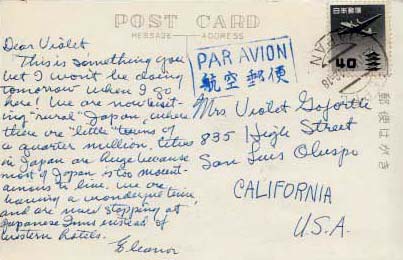 POST CARD
MESSAGE
ADDRESS
Dear Violet
This is something you
bet I won't be doing
tomorrow when I go
here! We are now visit-
ing "rural" Japan, where
there are "little" towns of
a quarter million. Cities
in Japan are huge because
most of Japan is too mount-
ainous to live. We are
having a wonderful time,
and are now stopping at
Japanese Inns instead of
western hotels.
Eleanor
PAR AVION
航空郵便
日本郵便
40
JAPAN
Mrs Violet Goforth
835 High Street
San Luis Obispo
CALIFORNIA
U.S.A.
郵便はがき